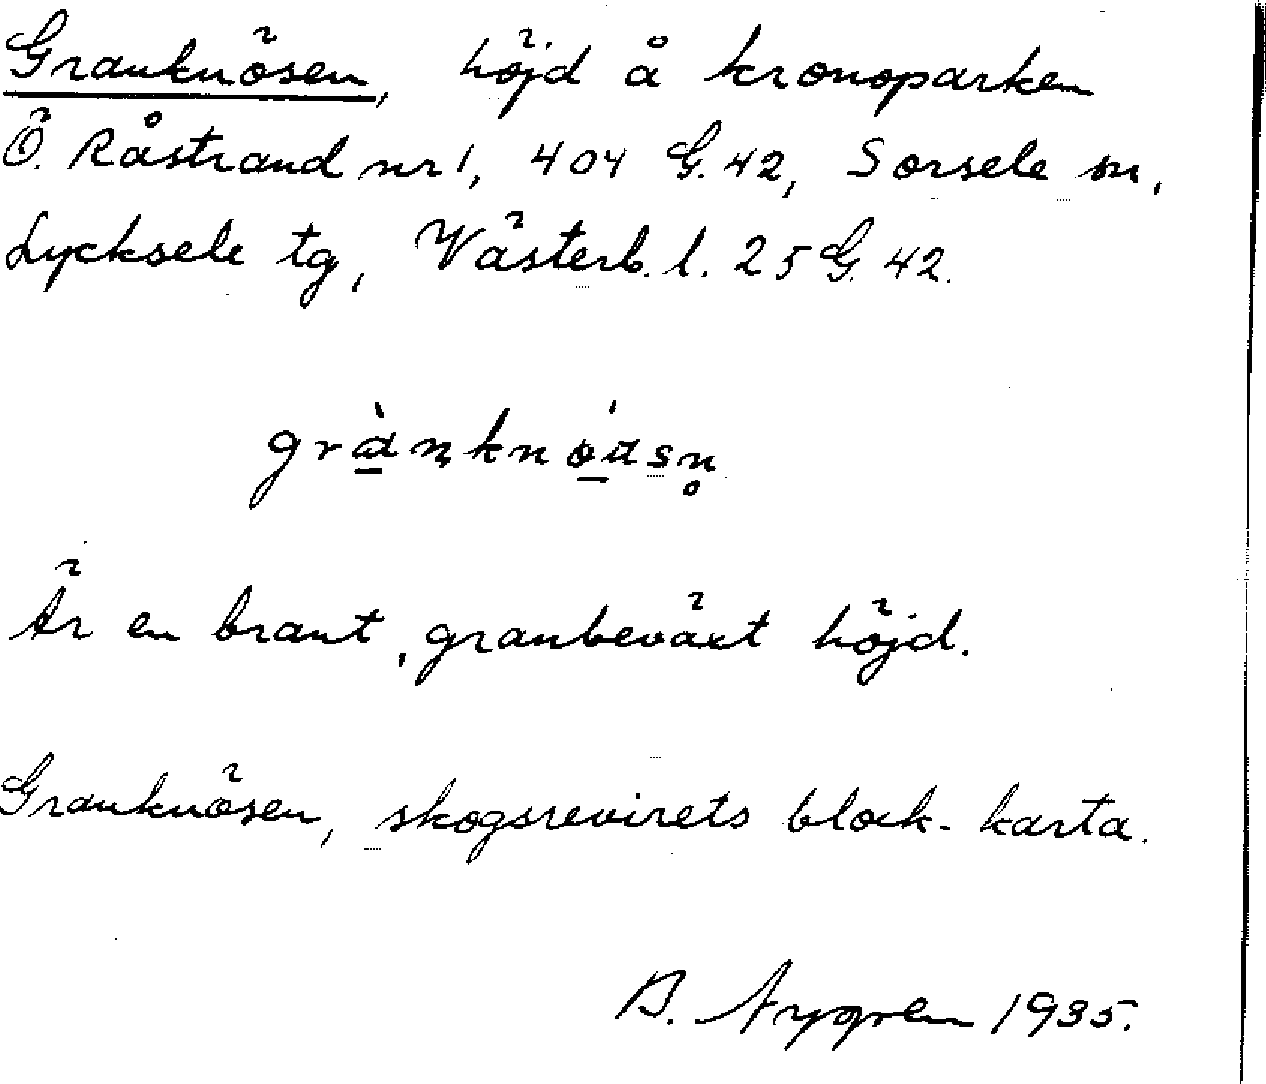 Granknösen, höjd å kronoparken
Ö. Råstrand nr 1, 404 G. 42, Sorsele sn,
Lycksele tg, Västerb. l. 25 G. 42.
Är en brant, granbeväxt höjd.
Granknösen, skogsrevirets block-karta.
B. Nygren 1935.